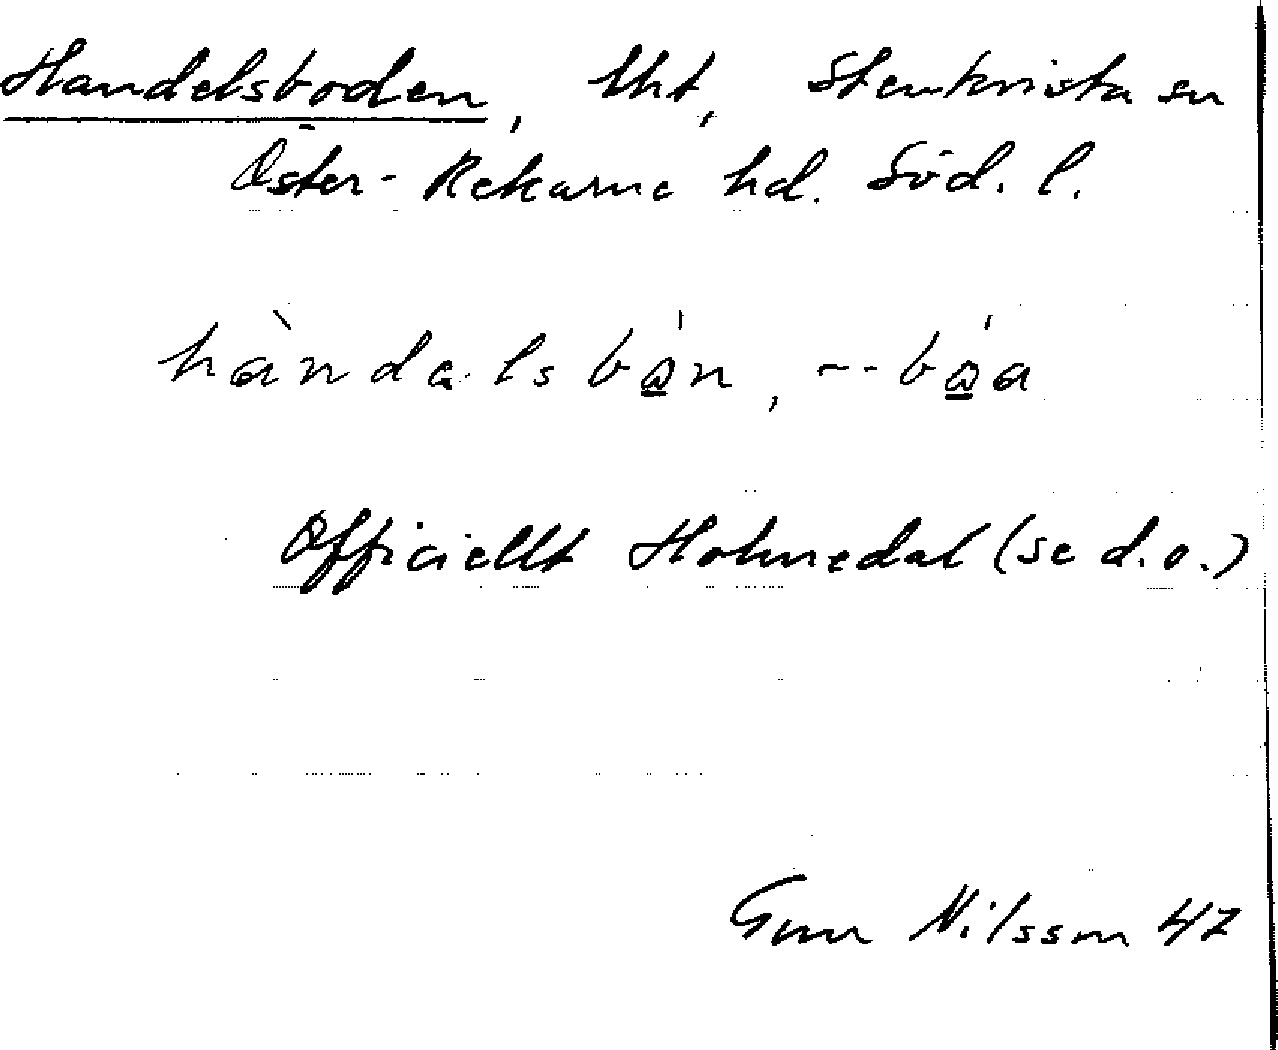 Handelsboden, lht, Stenkvista sn
Öster-Rekarne hd. Söd. l.
hàndalsbo̲n, --bo̲a
Officiellt Holmedal (se d.o.)
Gun Nilsson 47